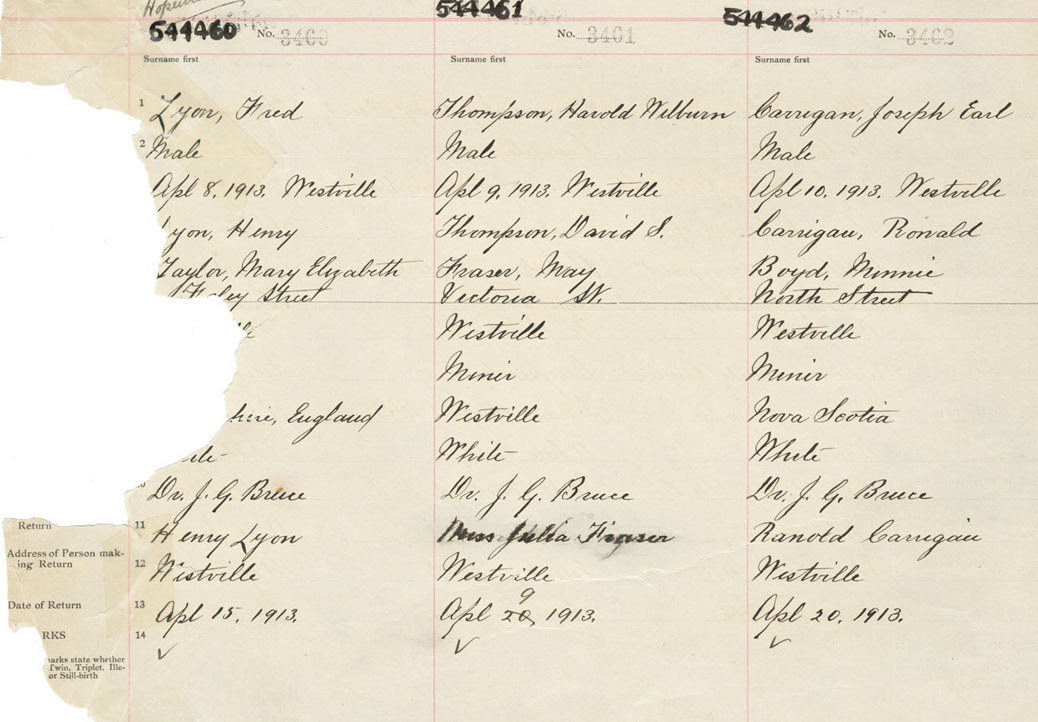 544460 No. 3460
544461 No. 3461
544462 No. 3462
Surname first
Surname first
Surname first
1 Lyon, Fred
Thompson, Harold Wilburn
Carrigan, Joseph Earl
2 Male
Male
Male
Apl 8, 1913. Westville
Apl 9, 1913. Westville
Apl 10, 1913. Westville
yon, Henry
Thompson, David S.
Carrigan, Ronald
Taylor, Mary Elizabeth
Fraser, May
Boyd, Minnie
Street
Victoria St.
North Street
Westville
Westville
Miner
Miner
hire, England
Westville
Nova Scotia
White
White
Dr. J. G. Bruce
Dr. J. G. Bruce
Dr. J. G. Bruce
Return
11 Henry Lyon
Miss Julia Fraser
Ranold Carrigan
Address of Person mak-
ing Return
12 Westville
Westville
Westville
Date of Return
13 Apl 15, 1913.
Apl 20 9, 1913.
Apl 20, 1913.
RKS
14
marks state whether
Twin, Triplet, Ille-
or Still-birth